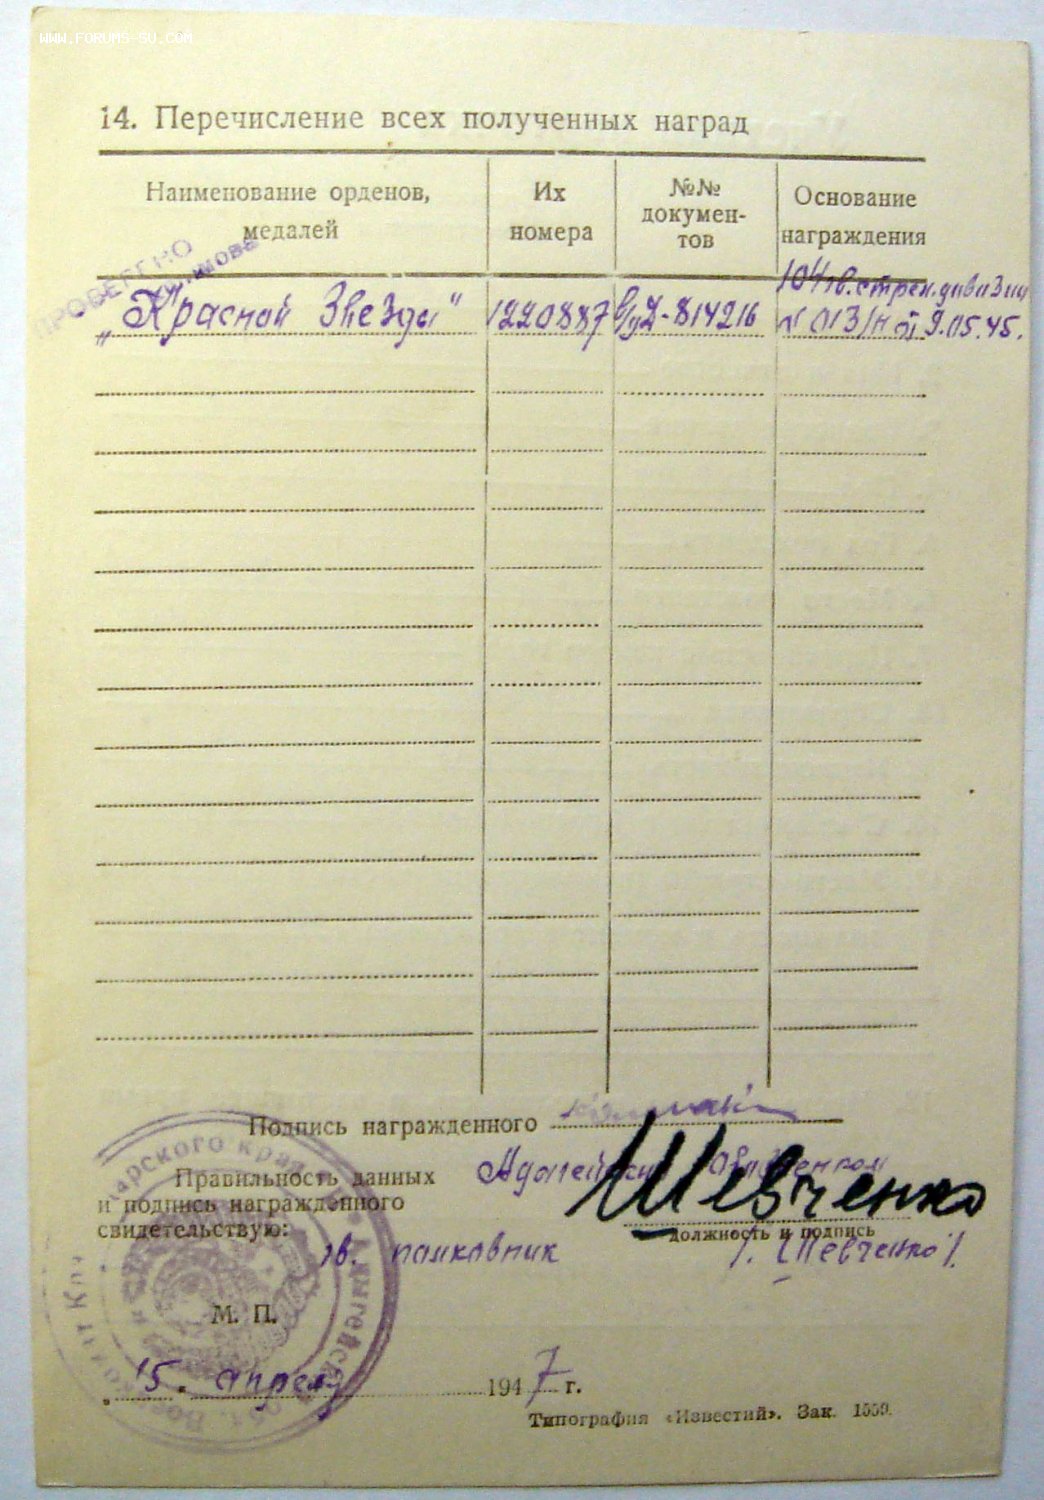 WWW.FORUMS-SU.COM
14. Перечисление всех полученных наград
Наименование орденов, медалей
Их номера
№№ докумен-тов
Основание награждения
ПРОВЕРЕНО
„Красной Звезды“ 1220887 814216 104 гв. стрел. дивизии
№ 013/н от 9.05.45.
Подпись награжденного
Правильность данных
и подпись награжденного
свидетельствую:
Шевченко
должность и подпись
гв. полковник /. Шевченко /.
М. П.
„15“ апреля 1947 г.
Типография «Известий». Зак. 1559.